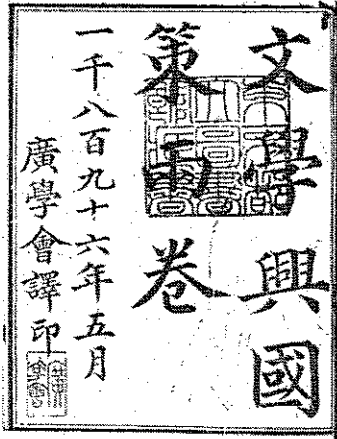 文學興國
策
卷
一千八百九十六年五月
廣學會譯印